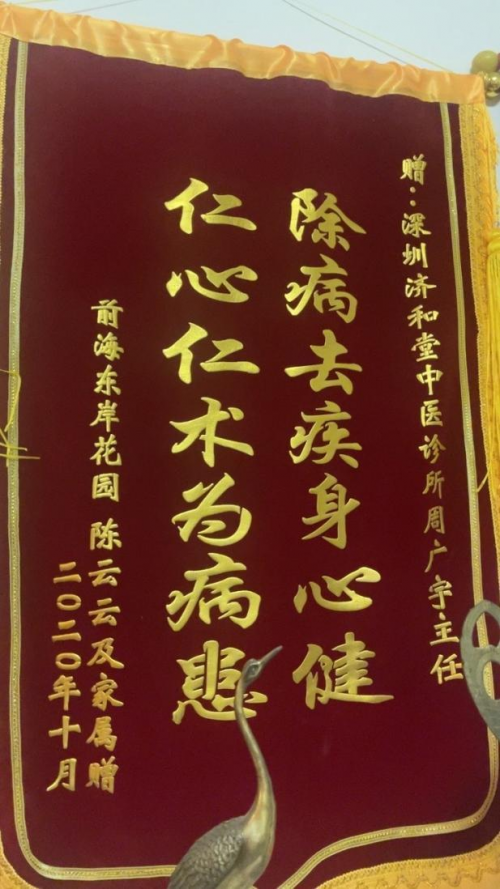 赠：深圳济和堂中医诊所周广宇主任
除病去疾身心健
仁心仁术为病患
前海东岸花园 陈云云及家属赠
二〇二〇年十月